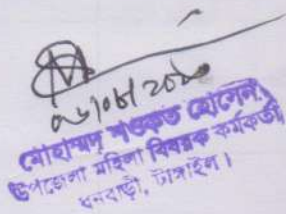 মোহাম্মদ শওকত হোসেন
উপজেলা মহিলা বিষয়ক কর্মকর্তা
ধনবাড়ী, টাঙ্গাইল।